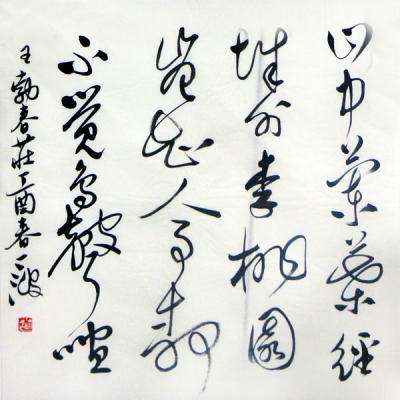 山中蘭葉經
城外李桃園
豈知人事靜
不覺鳥聲喧
王勃春莊丁酉春一波